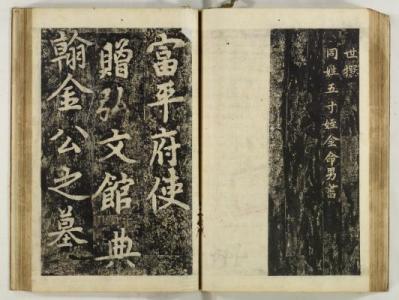 世撰
同姓五寸姪金命男書
富平府使
贈弘文館典
翰金公之墓